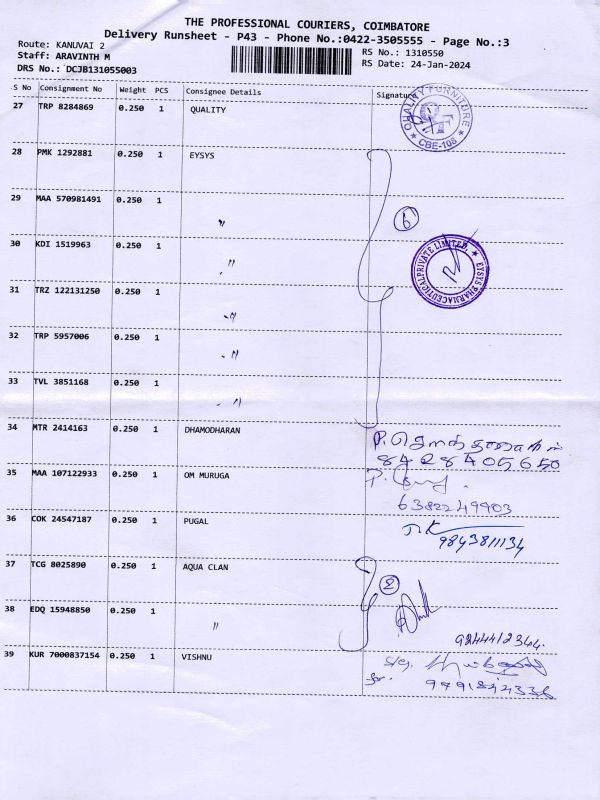 THE PROFESSIONAL COURIERS, COIMBATORE
Delivery Runsheet - P43 - Phone No.:0422-3505555 - Page No.:3
Route: KANUVAI 2
RS No.: 1310550
Staff: ARAVINTH M
RS Date: 24-Jan-2024
DRS No.: DCJB131055003
S No Consignment No Weight PCS Consignee Details Signature
27 TRP 8284869 0.250 1 QUALITY
QUALITY FURNITURE
CBE-108
28 PMK 1292881 0.250 1 EYSYS
29 MAA 570981491 0.250 1 〃
6
30 KDI 1519963 0.250 1 〃
EYSYS PHARMACEUTICAL PRIVATE LIMITED
31 TRZ 122131250 0.250 1 〃
32 TRP 5957006 0.250 1 〃
33 TVL 3851168 0.250 1 〃
34 MTR 2414163 0.250 1 DHAMODHARAN
8428405650
35 MAA 107122933 0.250 1 OM MURUGA
6382249903
36 COK 24547187 0.250 1 PUGAL
9843811134
37 TCG 8025890 0.250 1 AQUA CLAN
2
38 EDQ 15948850 0.250 1 〃
9244412344.
39 KUR 7000837154 0.250 1 VISHNU